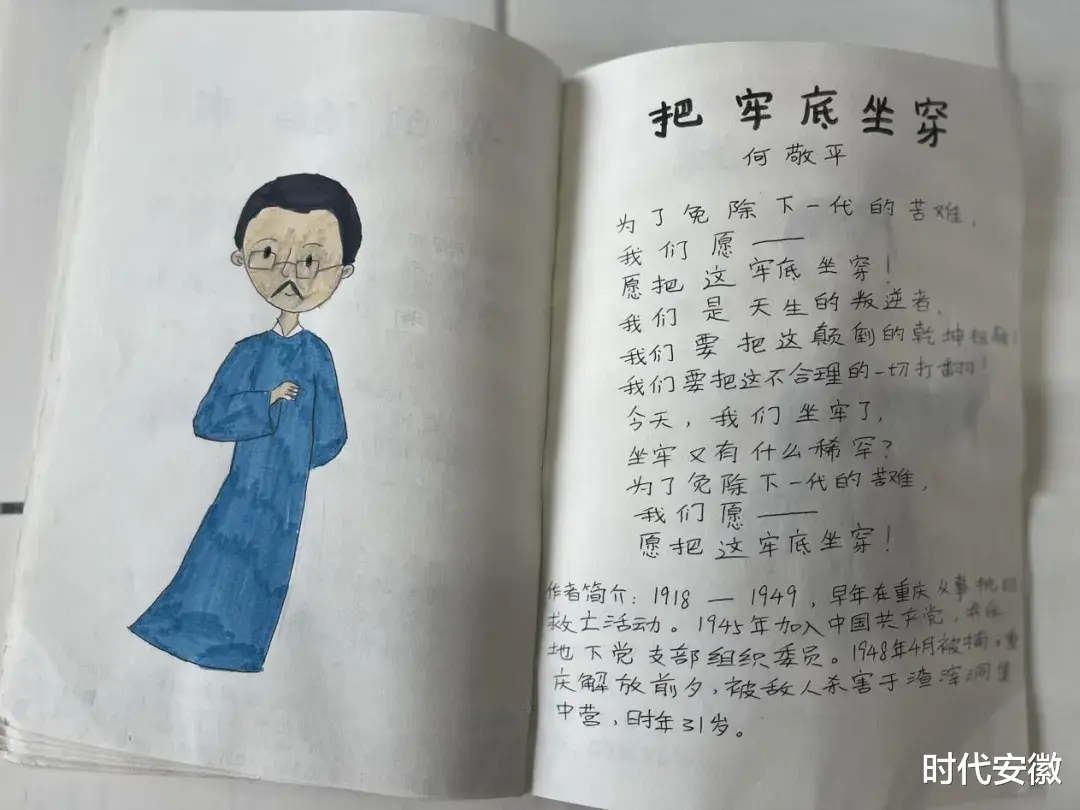 把牢底坐穿
何敬平
为了免除下一代的苦难，
我们愿——
愿把这牢底坐穿！
我们是天生的叛逆者，
我们要把这颠倒的乾坤扭转！
我们要把这不合理的一切打翻！
今天，我们坐牢了，
坐牢又有什么稀罕？
为了免除下一代的苦难，
我们愿——
愿把这牢底坐穿！
作者简介：1918—1949，早年在重庆从事抗日
救亡活动。1945年加入中国共产党，
地下党支部组织委员。1948年4月被捕，重
庆解放前夕，被敌人杀害于渣滓洞集
中营，时年31岁。
时代安徽